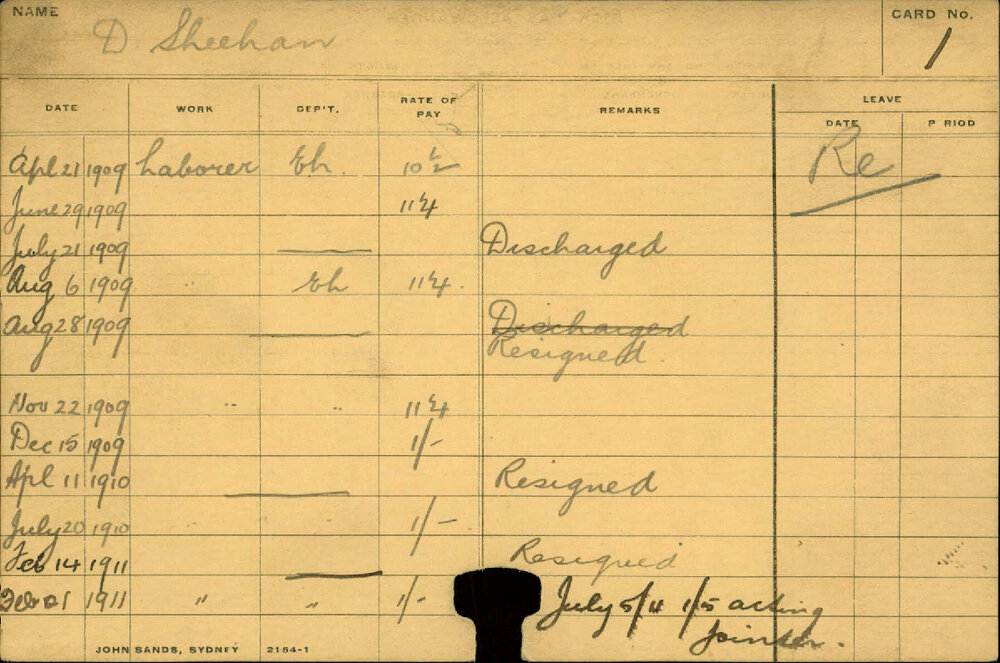 NAME D Sheehan CARD No. 1
DATE WORK DEP'T. RATE OF PAY REMARKS LEAVE
DATE P RIOD
Apl 21 1909 Laborer Eh. 10 1/2 Re
June 29 1909 11 1/4
July 21 1909 Discharged
Aug 6 1909 " Eh 11 1/4.
Aug 28 1909 Discharged
Resigned.
Nov 22 1909 " " 11 1/4
Dec 15 1909 1/-
Apl 11 1910 Resigned
July 20 1910 " " 1/-
Feb 14 1911 Resigned
Feb 21 1911 " " 1/- July 5/11 1/5 acting
joinder.
JOHN SANDS, SYDNEY 2154-1